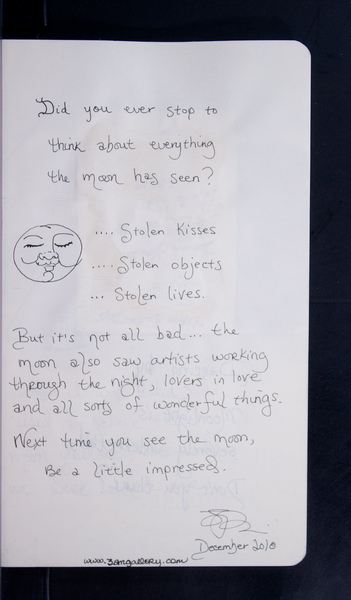 Did you ever stop to
think about everything
the moon has seen?
.... Stolen Kisses
.... Stolen objects
... Stolen lives.
But it's not all bad... the
moon also saw artists working
through the night, lovers in love
and all sorts of wonderful things.
Next time you see the moon,
Be a little impressed.
December 2010
www.3amgallery.com